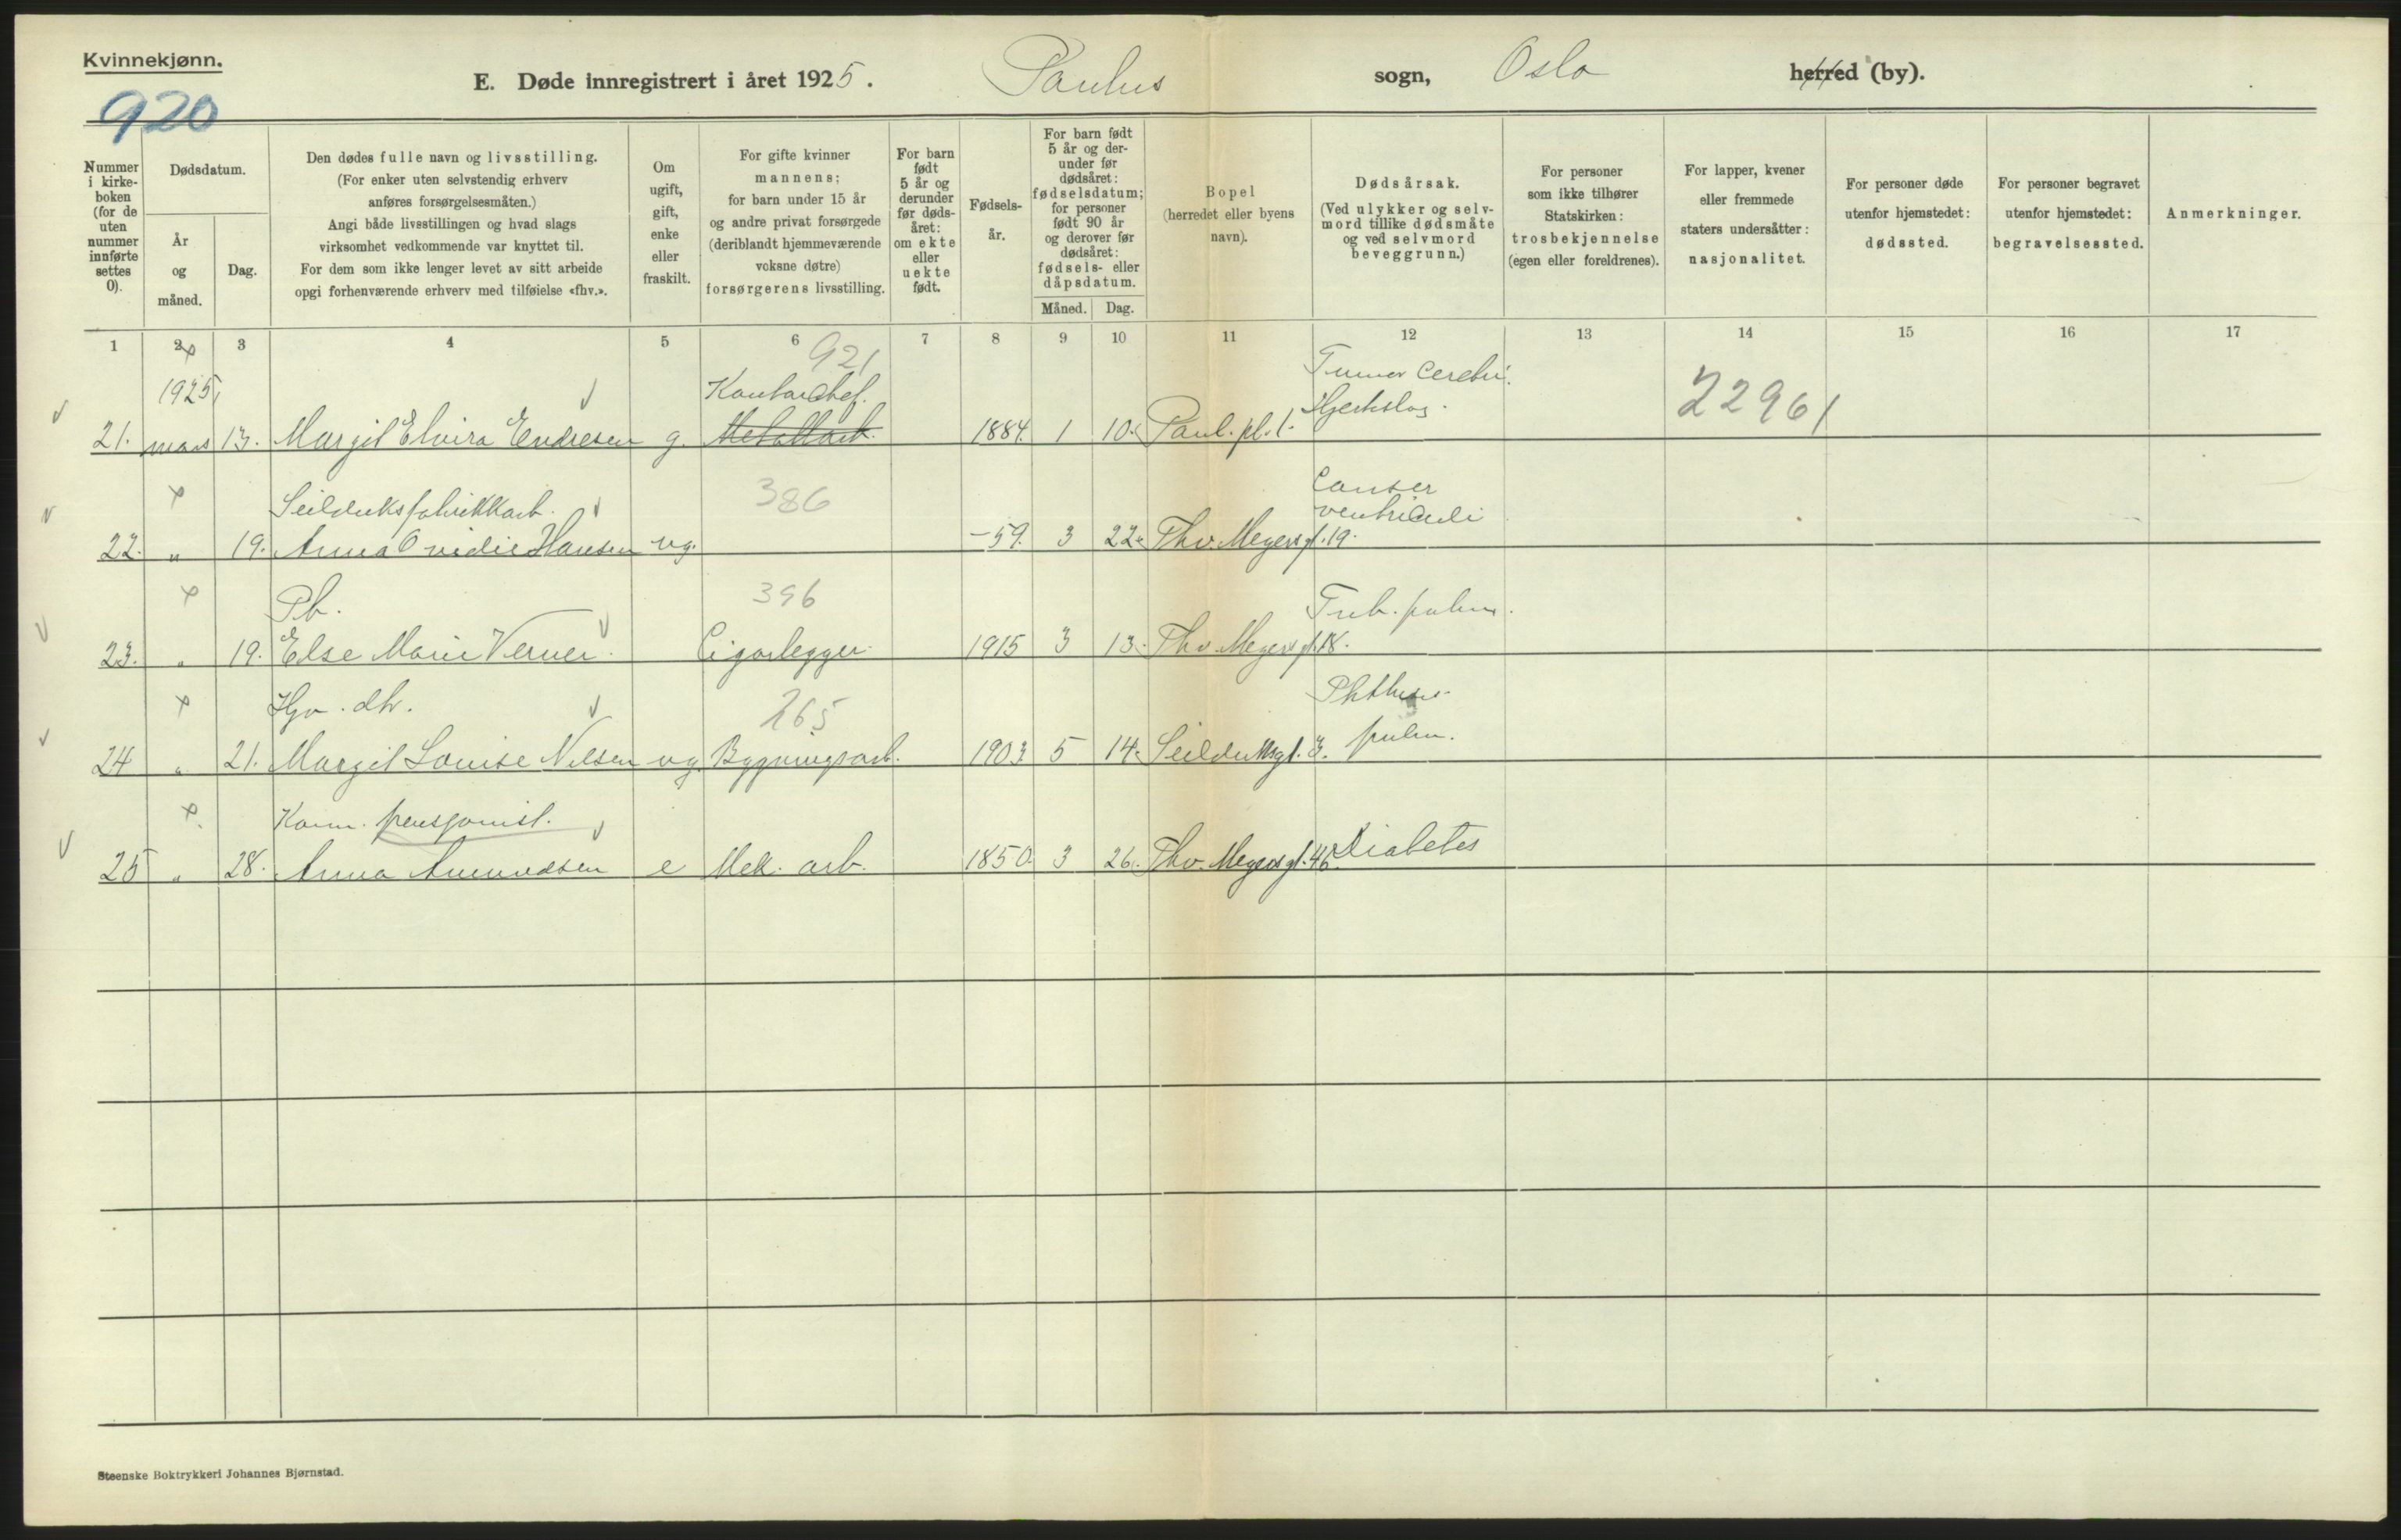 Kvinnekjønn.
920
E. Døde innregistrert i året 1925. Paulus sogn, Oslo herred (by).
Nummer i kirke-boken (for de uten nummer innførte settes 0).
Dødsdatum.
År og måned.
Dag.
Den dødes fulle navn og livsstilling.
(For enker uten selvstendig erhverv
anføres forsørgelsesmåten.)
Angi både livsstillingen og hvad slags
virksomhet vedkommende var knyttet til.
For dem som ikke lenger levet av sitt arbeide
opgi forhenværende erhverv med tilføielse «fhv.».
Om ugift, gift, enke eller fraskilt.
For gifte kvinner
mannens;
for barn under 15 år
og andre privat forsørgede
(deriblandt hjemmeværende
voksne døtre)
forsørgerens livsstilling.
For barn født 5 år og derunder før døds-året: om ekte eller uekte født.
Fødsels-år.
For barn født 5 år og der-under før dødsåret: fødselsdatum; for personer født 90 år og derover før dødsåret: fødsels- eller dåpsdatum.
Måned. Dag.
Bopel
(herredet eller byens
navn).
Dødsårsak.
(Ved ulykker og selv-
mord tillike dødsmåte
og ved selvmord
beveggrunn.)
For personer
som ikke tilhører
Statskirken:
trosbekjennelse
(egen eller foreldrenes).
For lapper, kvener
eller fremmede
staters undersåtter:
nasjonalitet.
For personer døde
utenfor hjemstedet:
dødssted.
For personer begravet
utenfor hjemstedet:
begravelsessted.
Anmerkninger.
1 2 3 4 5 6 7 8 9 10 11 12 13 14 15 16 17
921
1925 Kontorchef. Tumor Cerebri.
Hjerteslag. 22961
21. mars 13. Margit Elvira Endresen g. Metallarb. 1884 1 10. Paul. pl. 1.
Seilduksfabrikkarb. 386 Canser
ventriculi
22. " 19. Anna Ovidie Hansen ug. -59. 3 22. Thv. Meyersgt. 19.
Pb. 396 Tub. pulm.
23. " 19. Else Marie Verner. Cigarlegger. 1915 3 13. Thv. Meyersgt. 18.
Hjv. dtr. 265 Phthisis
pulm.
24 " 21. Margit Louise Nilsen ug. Bygningsarb. 1903 5 14. Seilduksgt. 3.
Kom. pensjonist.
25 " 28. Anna Amundsen e Mek. arb. 1850 3 26. Thv. Meyersgt. 46. Diabetes
Steenske Boktrykkeri Johannes Bjørnstad.